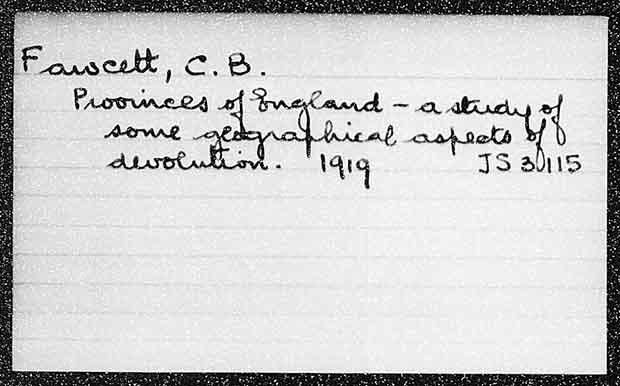 Fawcett, C. B.
Provinces of England - a study of
some geographical aspects of
devolution. 1919 JS 3115